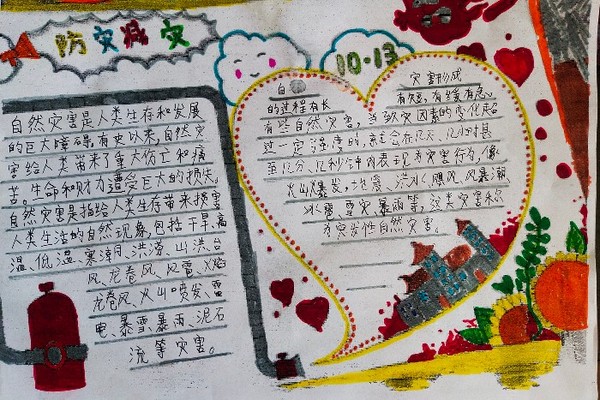 防灾减灾
10·13
自然灾害是人类生存和发展
的巨大障碍,有史以来,自然灾
害给人类带来了重大伤亡和痛
苦。生命和财力遭受巨大的损失。
自然灾害是指给人类生存带来损害
人类生活的自然现象,包括干旱、高
温、低温、寒潮、洪涝、山洪、台
风、龙卷风、风雹、火焰
龙卷风、火山喷发、雷
电、暴雪、暴雨、泥石
流等灾害。
自 灾害形成
的过程有长 有短,有缓有急。
有些自然灾害,当致灾因素的变化超
过一定强度时,就会在几天、几小时甚
至几分、几秒钟内表现为灾害行为,像
火山爆发,地震、洪水、飓风、风暴潮
冰雹、雪灾、暴雨等,这类灾害称
为突发性自然灾害。